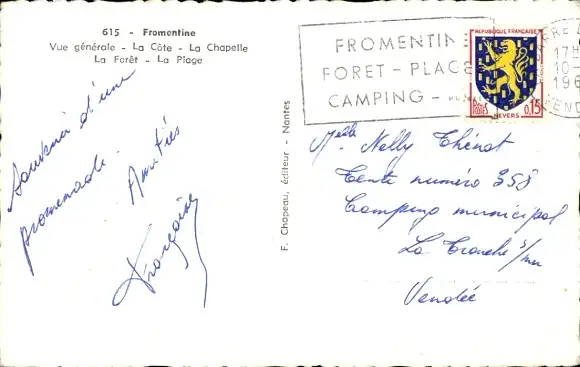 615 - Fromentine
Vue générale - La Côte - La Chapelle
La Forêt - La Plage
Souvenir d'une
promenade.
Amitiés
Françoise
F. Chapeau, éditeur - Nantes
FROMENTINE
FORET - PLAGE
CAMPING -
REPUBLIQUE FRANÇAISE
Postes 0,15
NEVERS
17H
10-
196
VEN
Melle Nelly Thénot
Tente numéro 358
Camping municipal
La Tranche s/mer
Vendée